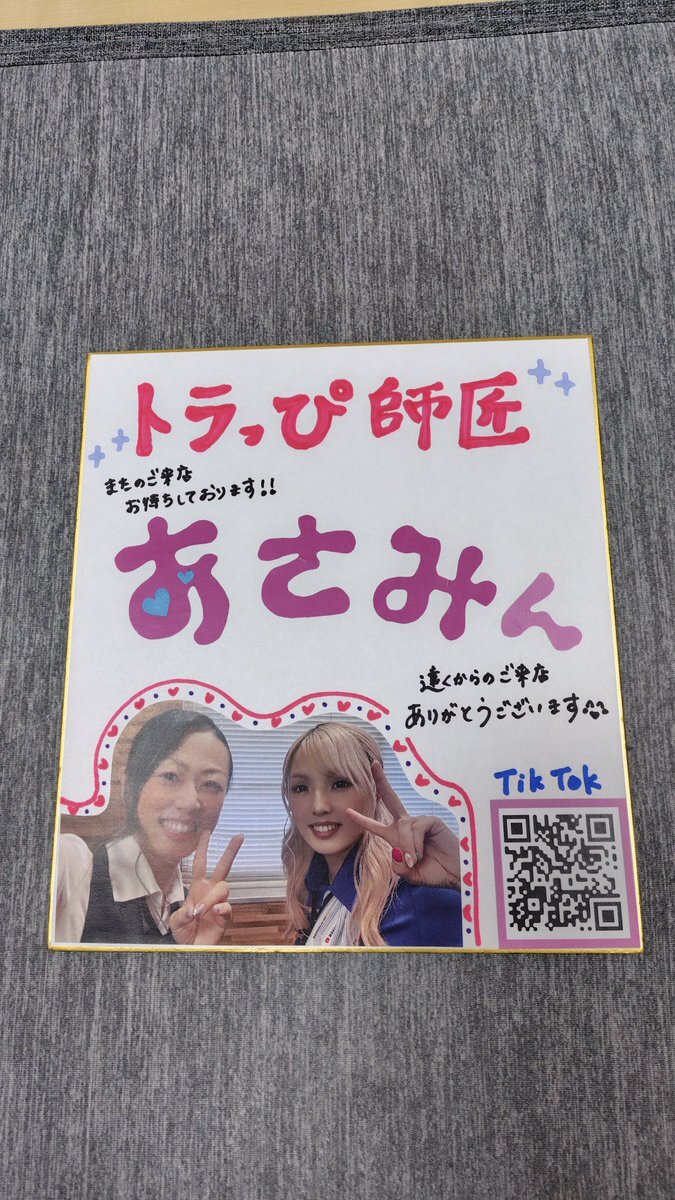 トラっぴ師匠
またのご来店
お待ちしております!!
あさみん
遠くからのご来店
ありがとうございます
TikTok